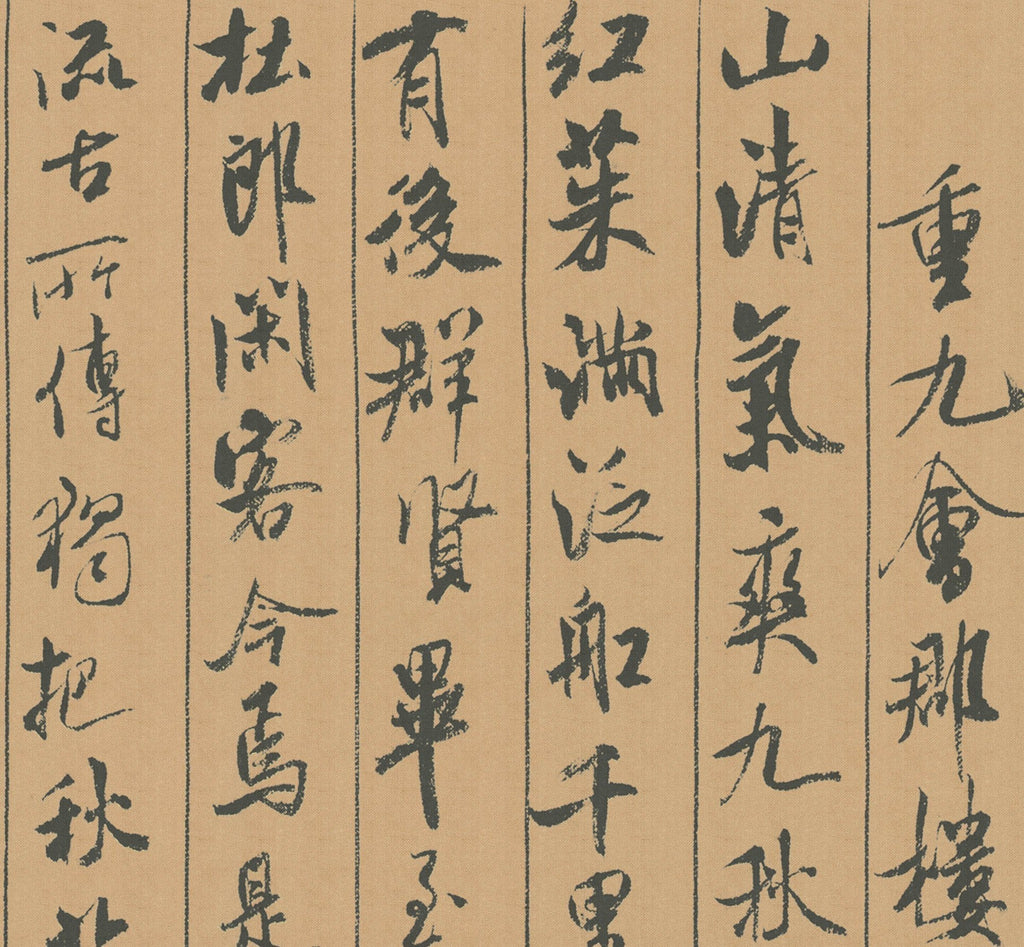 重九會郡樓
山清氣爽九秋
紅茱滿泛舡千里
有後群賢畢至
杜郎閑客今焉是
流古所傳獨把秋